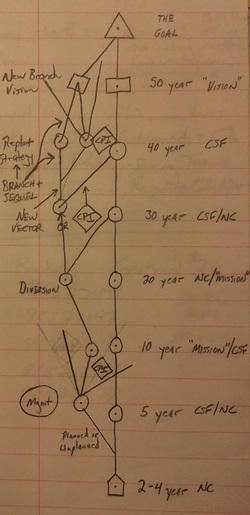 THE
GOAL
New Branch
Vision
50 year "Vision"
CPI
40 year CSF
Replot
Strategy
BRANCH +
SEQUEL
NEW
VECTOR
OR
CPI
30 year CSF/NC
DIVERSION
20 year NC/"Mission"
10 year "Mission"/CSF
Mgmt
5 year CSF/NC
Planned or
Unplanned
2-4 year NC